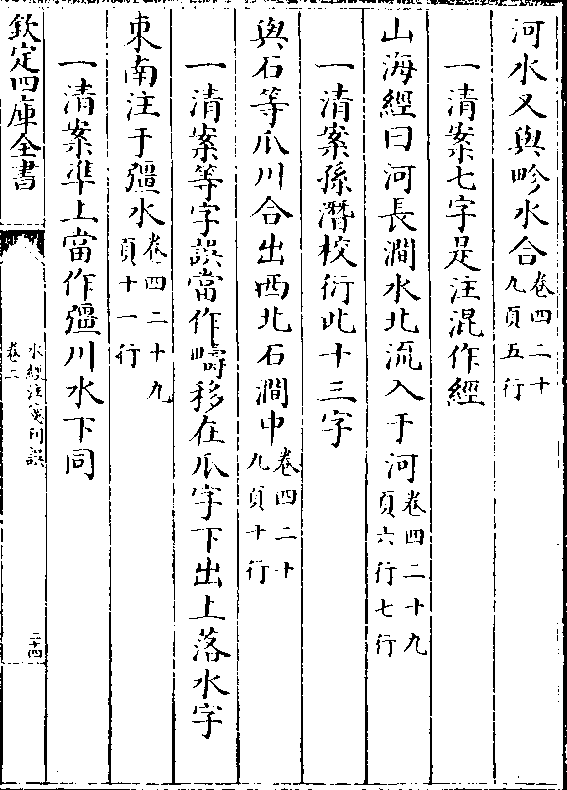 河水又與畛水合卷四二十九頁五行
一清案七字是注混作經
山海經曰河長澗水北流入于河卷四二十九頁六行七行
一清案孫潛校衍此十三字
與石等爪川合出西北石澗中卷四二十九頁十行
一清案等字誤當作疇移在爪字下出上落水字
東南注于彊水卷四二十九頁十一行
一清案準上當作彊川水下同
欽定四庫全書
水經注箋刊誤
卷二
二十四